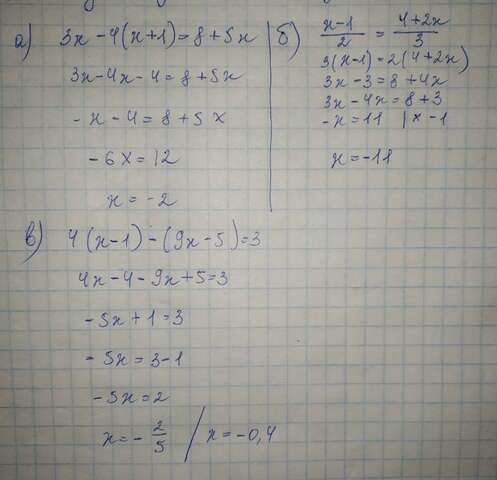 а) 3x - 4(x+1) = 8 + 5x
3x - 4x - 4 = 8 + 5x
- x - 4 = 8 + 5x
- 6x = 12
x = -2
б) x-1/2 = 4+2x/3
3(x-1) = 2(4+2x)
3x - 3 = 8 + 4x
3x - 4x = 8 + 3
-x = 11 | x -1
x = -11
в) 4(x-1) - (9x-5) = 3
4x - 4 - 9x + 5 = 3
- 5x + 1 = 3
- 5x = 3 - 1
- 5x = 2
x = - 2/5 / x = -0,4